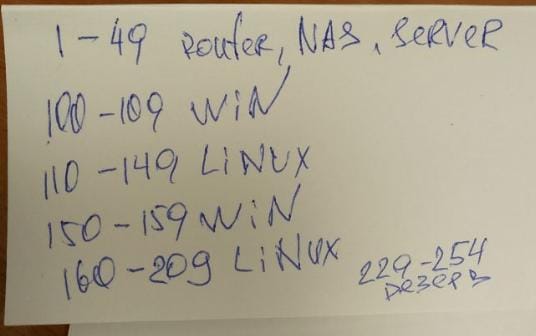 1 - 49 router, NAS, SERVER
100 - 109 WiN
110 - 149 LiNUX
150 - 159 WiN
160 - 209 LiNUX
229 - 254
резерв